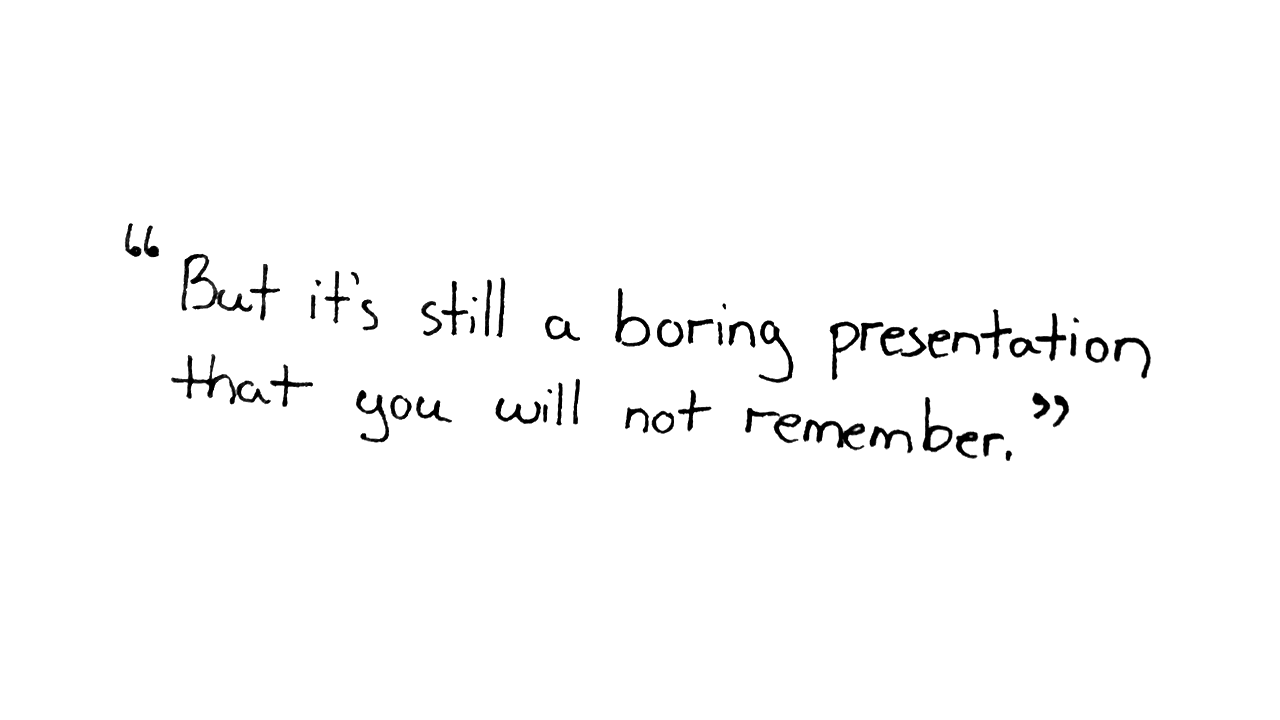 “But it's still a boring presentation
that you will not remember.”